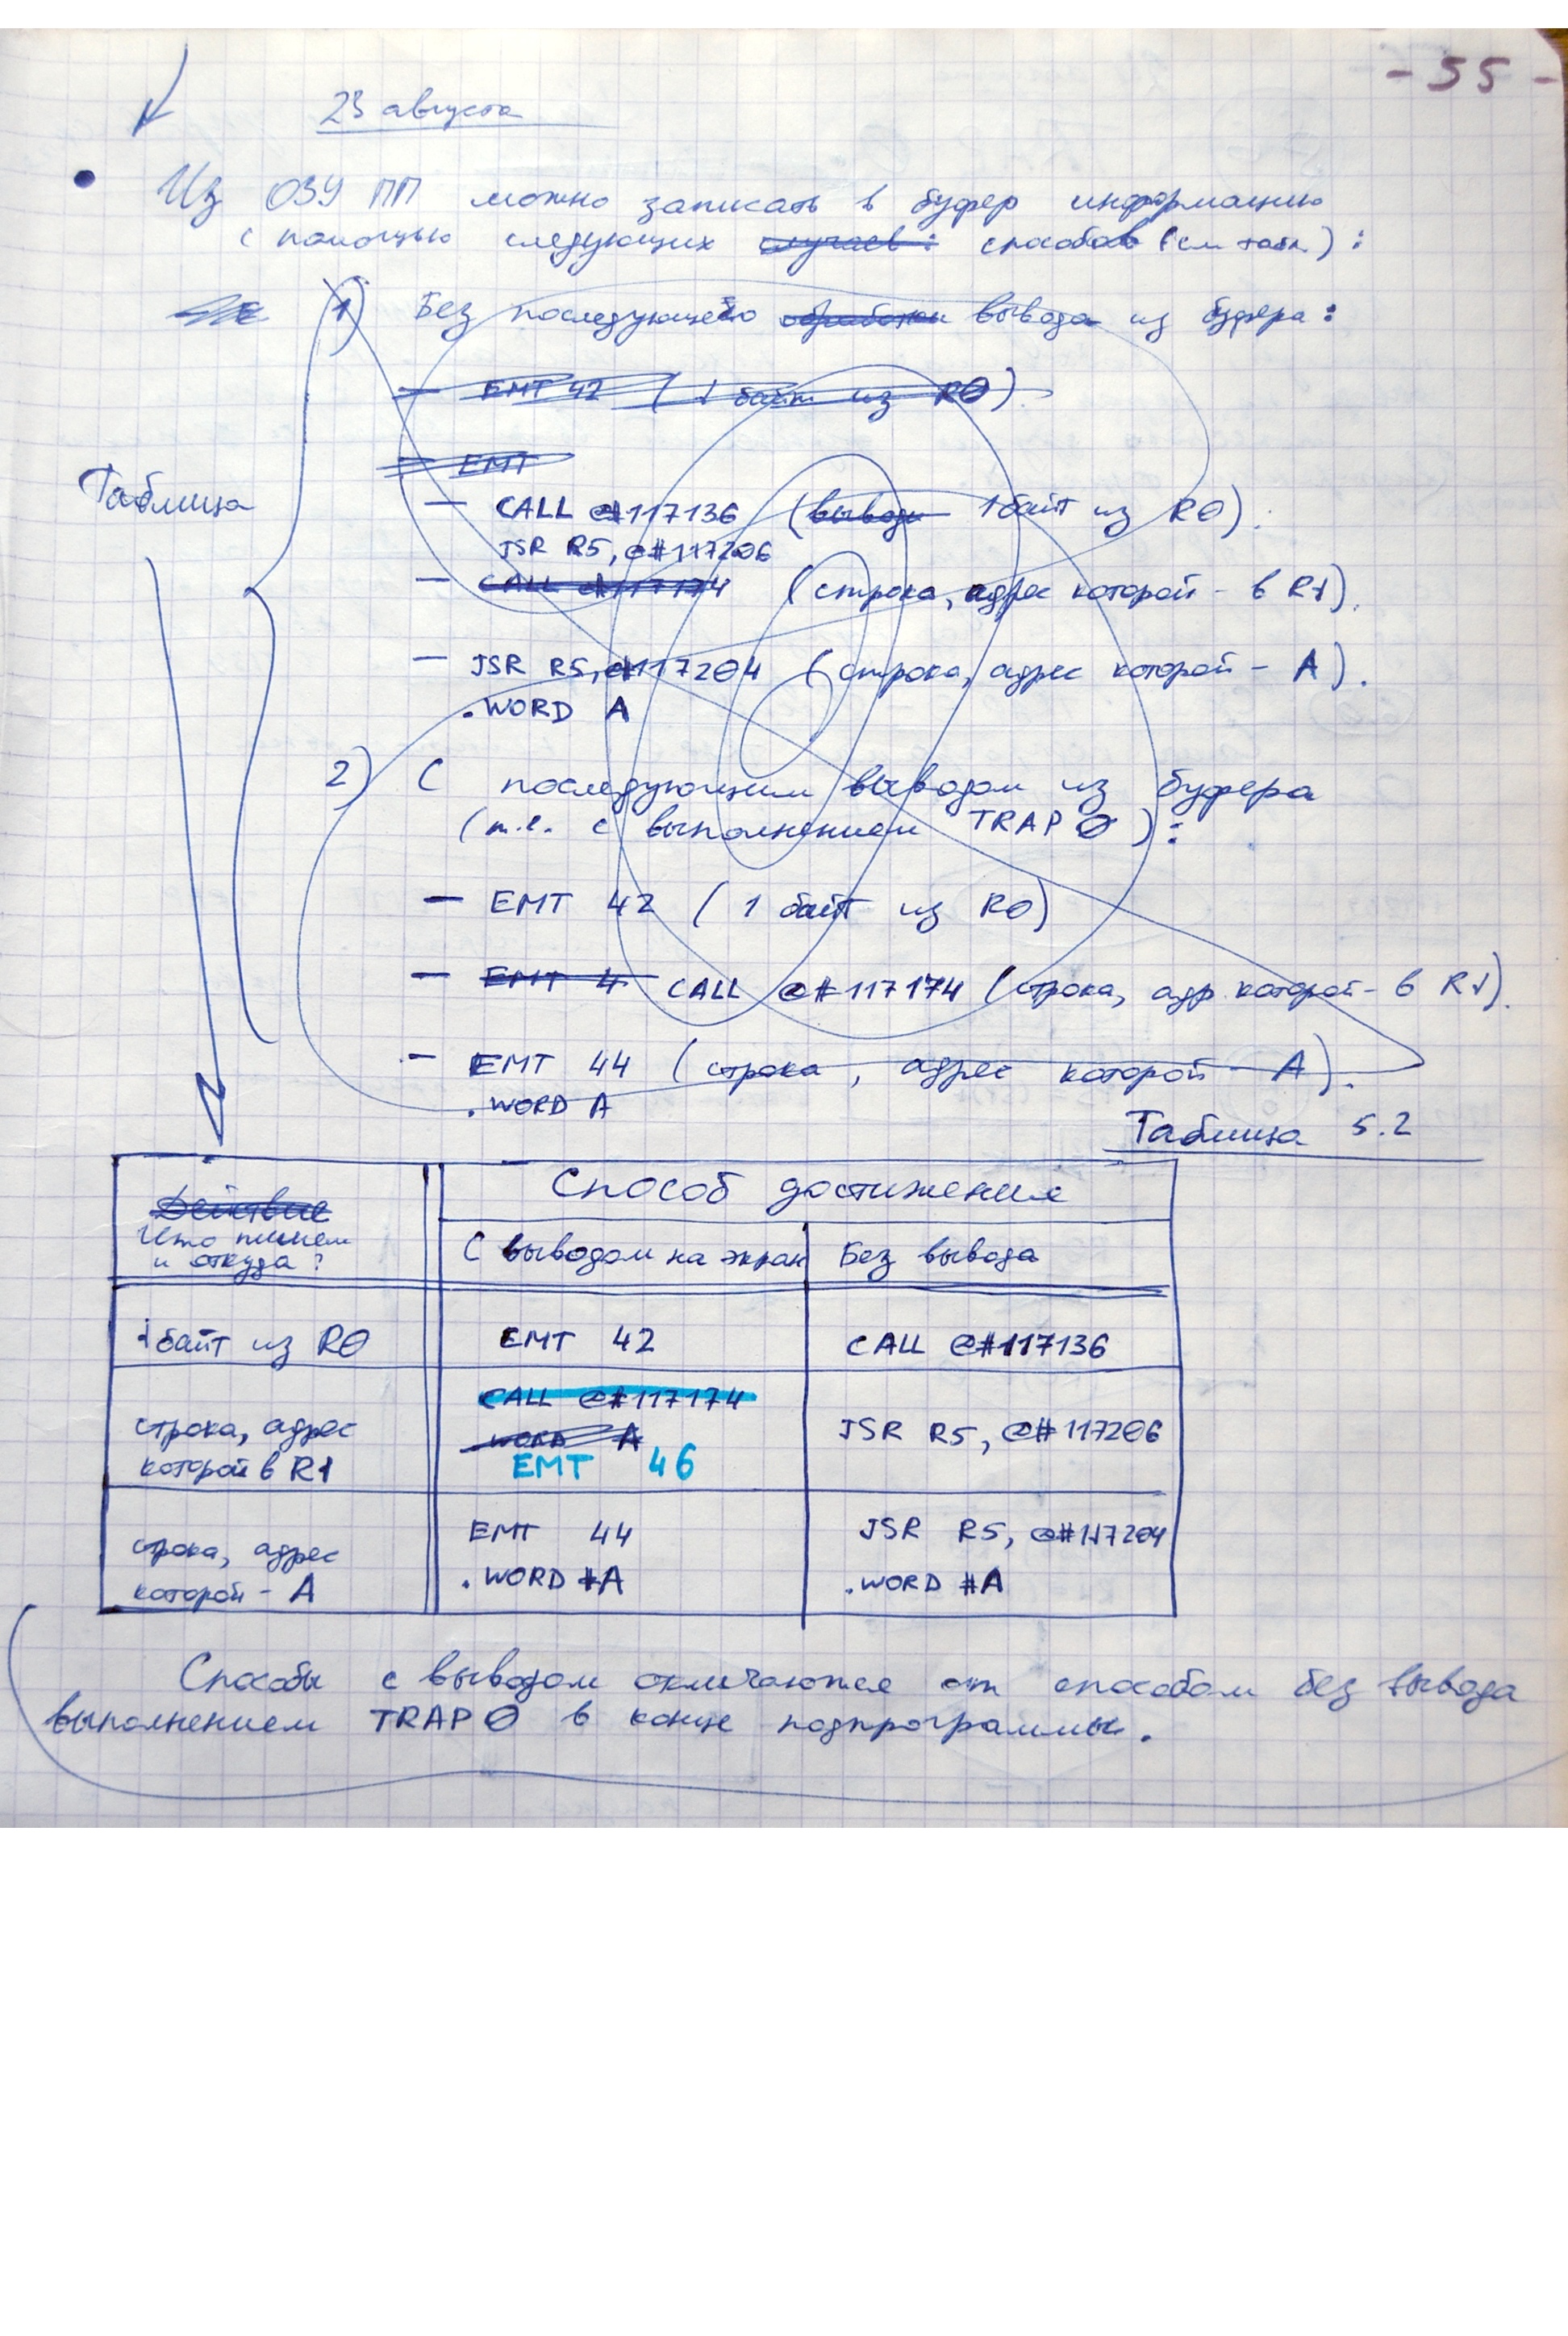 - 55 -
23 августа
Из ОЗУ ПП можно записать в буфер информацию
с помощью следующих случаев: способов (см табл):
1) Без последующего обработки вывода из буфера:
— EMT 42 (1 байт из R0)
— EMT
Таблица
— CALL @#117136 (вывода 1 байт из R0).
JSR R5, @#117206
— CALL @#117174 (строка, адрес которой - в R1).
— JSR R5, @#117204 (строка, адрес которой - A).
.WORD A
2) С последующим выводом из буфера
(т.е. с выполнением TRAP 0):
— EMT 42 (1 байт из R0)
— EMT 4 CALL @#117174 (строка, адр которой - в R1).
— EMT 44 (строка, адрес которой - A).
.WORD A
Таблица 5.2
Действие
Что пишем
и откуда?
Способ достижения
С выводом на экран
Без вывода
1 байт из R0
EMT 42
CALL @#117136
строка, адрес
которой в R1
CALL @#117174
.WORD A
EMT 46
JSR R5, @#117206
строка, адрес
которой - A
EMT 44
.WORD #A
JSR R5, @#117204
.WORD #A
Способы с выводом отличаются от способом без вывода
выполнением TRAP 0 в конце подпрограммы.